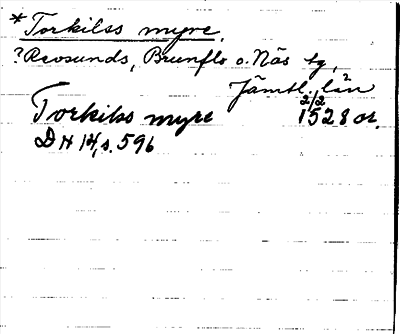 *Torkilss myre.
?Revsunds, Brunflo o. Näs tg,
Jämtl. län
Torkilss myre 2/2 1528 or.
DN 14, s. 596